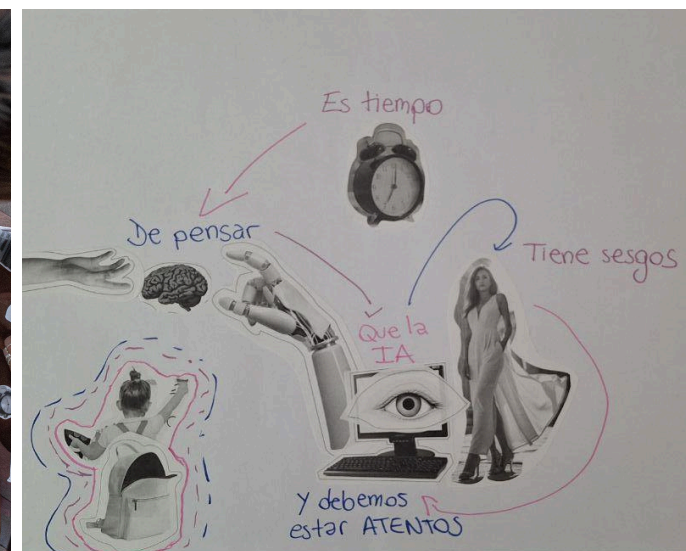 Es tiempo
De pensar
Que la
IA
Tiene sesgos
Y debemos
estar ATENTOS